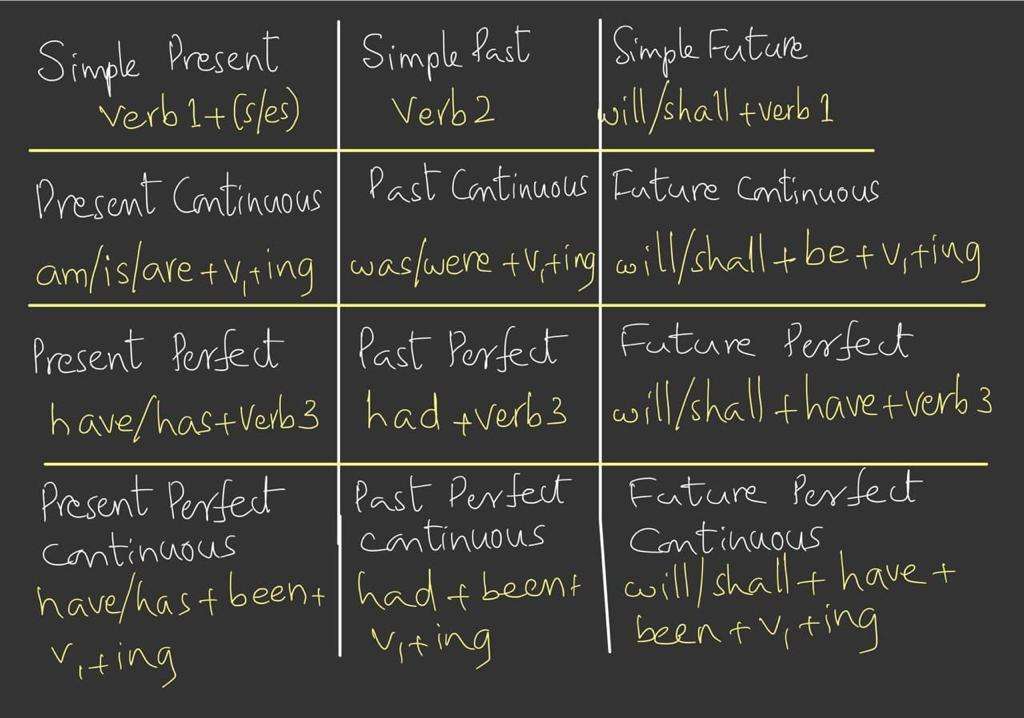 Simple Present
verb 1 + (s/es)
Simple Past
Verb 2
Simple Future
will/shall + verb 1
Present Continuous
am/is/are + v₁ + ing
Past Continuous
was/were + v₁ + ing
Future Continuous
will/shall + be + v₁ + ing
Present Perfect
have/has + verb 3
Past Perfect
had + verb 3
Future Perfect
will/shall + have + verb 3
Present Perfect
Continuous
have/has + been +
v₁ + ing
Past Perfect
continuous
had + been +
v₁ + ing
Future Perfect
Continuous
will/shall + have +
been + v₁ + ing